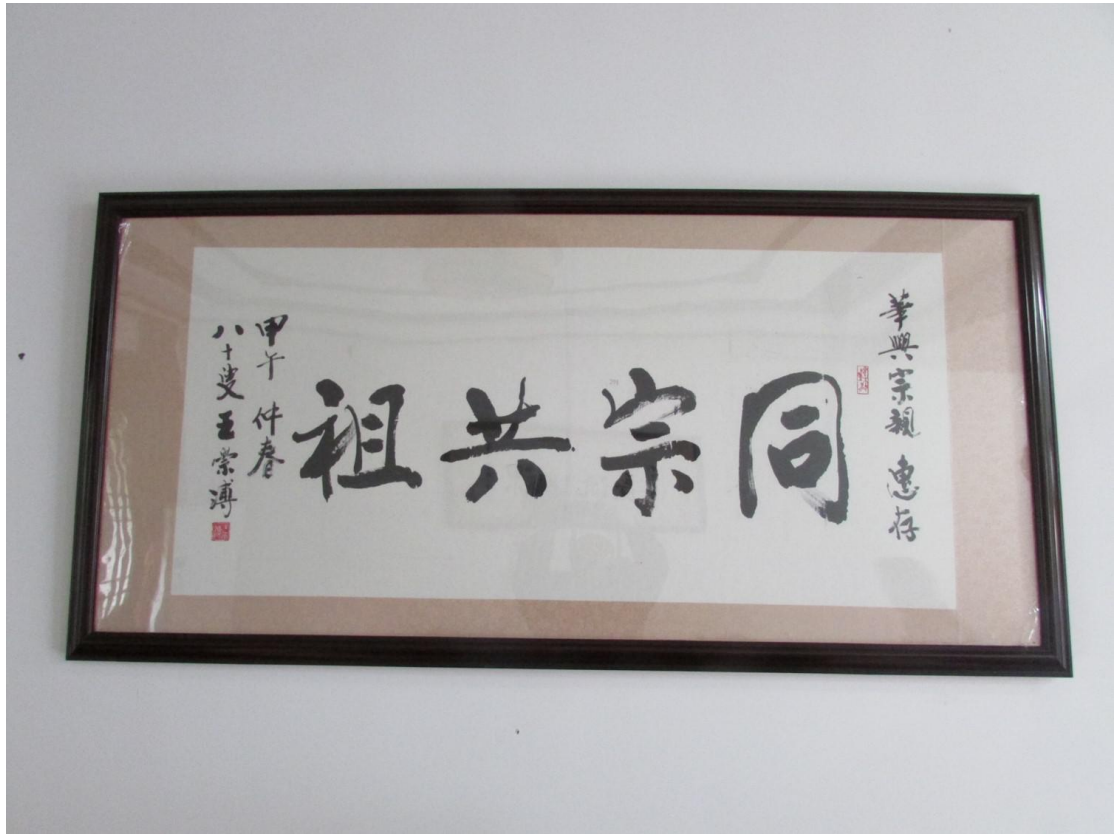 華興宗親 惠存
同宗共祖
甲午 仲春
八十叟 王崇溥